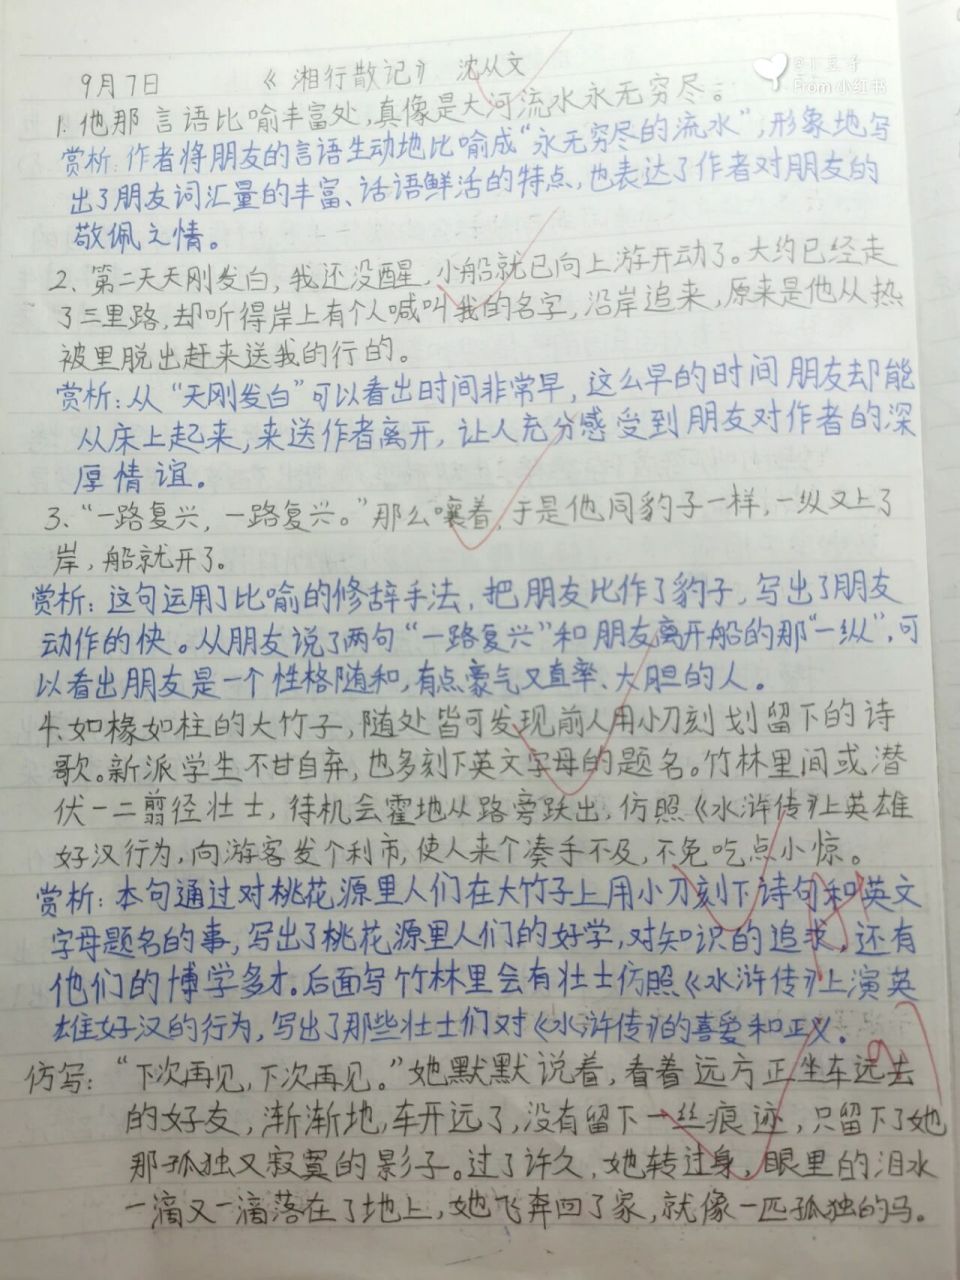 9月7日 《湘行散记》 沈从文
From 小红书
1. 他那言语比喻丰富处,真像是大河流水永无穷尽。
赏析:作者将朋友的言语生动地比喻成“永无穷尽的流水”,形象地写
出了朋友词汇量的丰富、话语鲜活的特点,也表达了作者对朋友的
敬佩之情。
2、第二天天刚发白,我还没醒,小船就已向上游开动了。大约已经走
了三里路,却听得岸上有个人喊叫我的名字,沿岸追来,原来是他从热
被里脱出赶来送我的行的。
赏析:从“天刚发白”可以看出时间非常早,这么早的时间朋友却能
从床上起来,来送作者离开,让人充分感受到朋友对作者的深
厚情谊。
3、“一路复兴,一路复兴。”那么嚷着,于是他同豹子一样,一纵又上了
岸,船就开了。
赏析:这句运用了比喻的修辞手法,把朋友比作了豹子,写出了朋友
动作的快。从朋友说了两句“一路复兴”和朋友离开船的那“一纵”,可
以看出朋友是一个性格随和,有点豪气又直率、大胆的人。
4、如椽如柱的大竹子,随处皆可发现前人用小刀刻划留下的诗
歌。新派学生不甘自弃,也多刻下英文字母的题名。竹林里间或潜
伏一二翦径壮士,待机会霍地从路旁跃出,仿照《水浒传》上英雄
好汉行为,向游客发个利市,使人来个凑手不及,不免吃点小惊。
赏析:本句通过对桃花源里人们在大竹子上用小刀刻下诗句和英文
字母题名的事,写出了桃花源里人们的好学,对知识的追求,还有
他们的博学多才。后面写竹林里会有壮士仿照《水浒传》上演英
雄好汉的行为,写出了那些壮士们对《水浒传》的喜爱和正义。
仿写:“下次再见,下次再见。”她默默说着,看着远方正坐车远去
的好友,渐渐地,车开远了,没有留下一丝痕迹,只留下了她
那孤独又寂寞的影子。过了许久,她转过身,眼里的泪水
一滴又一滴落在了地上,她飞奔回了家,就像一匹孤独的马。